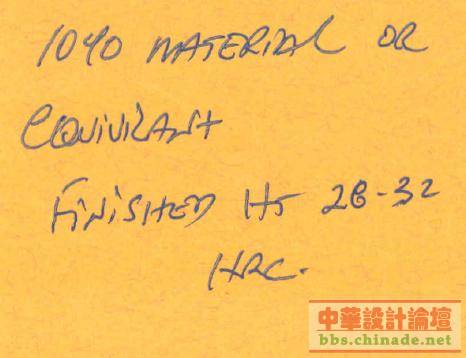 1040 MATERIAL OR
EQUIVILANT
FINISHED HT 28-32
HRC.
中華設計論壇
bbs.chinade.net